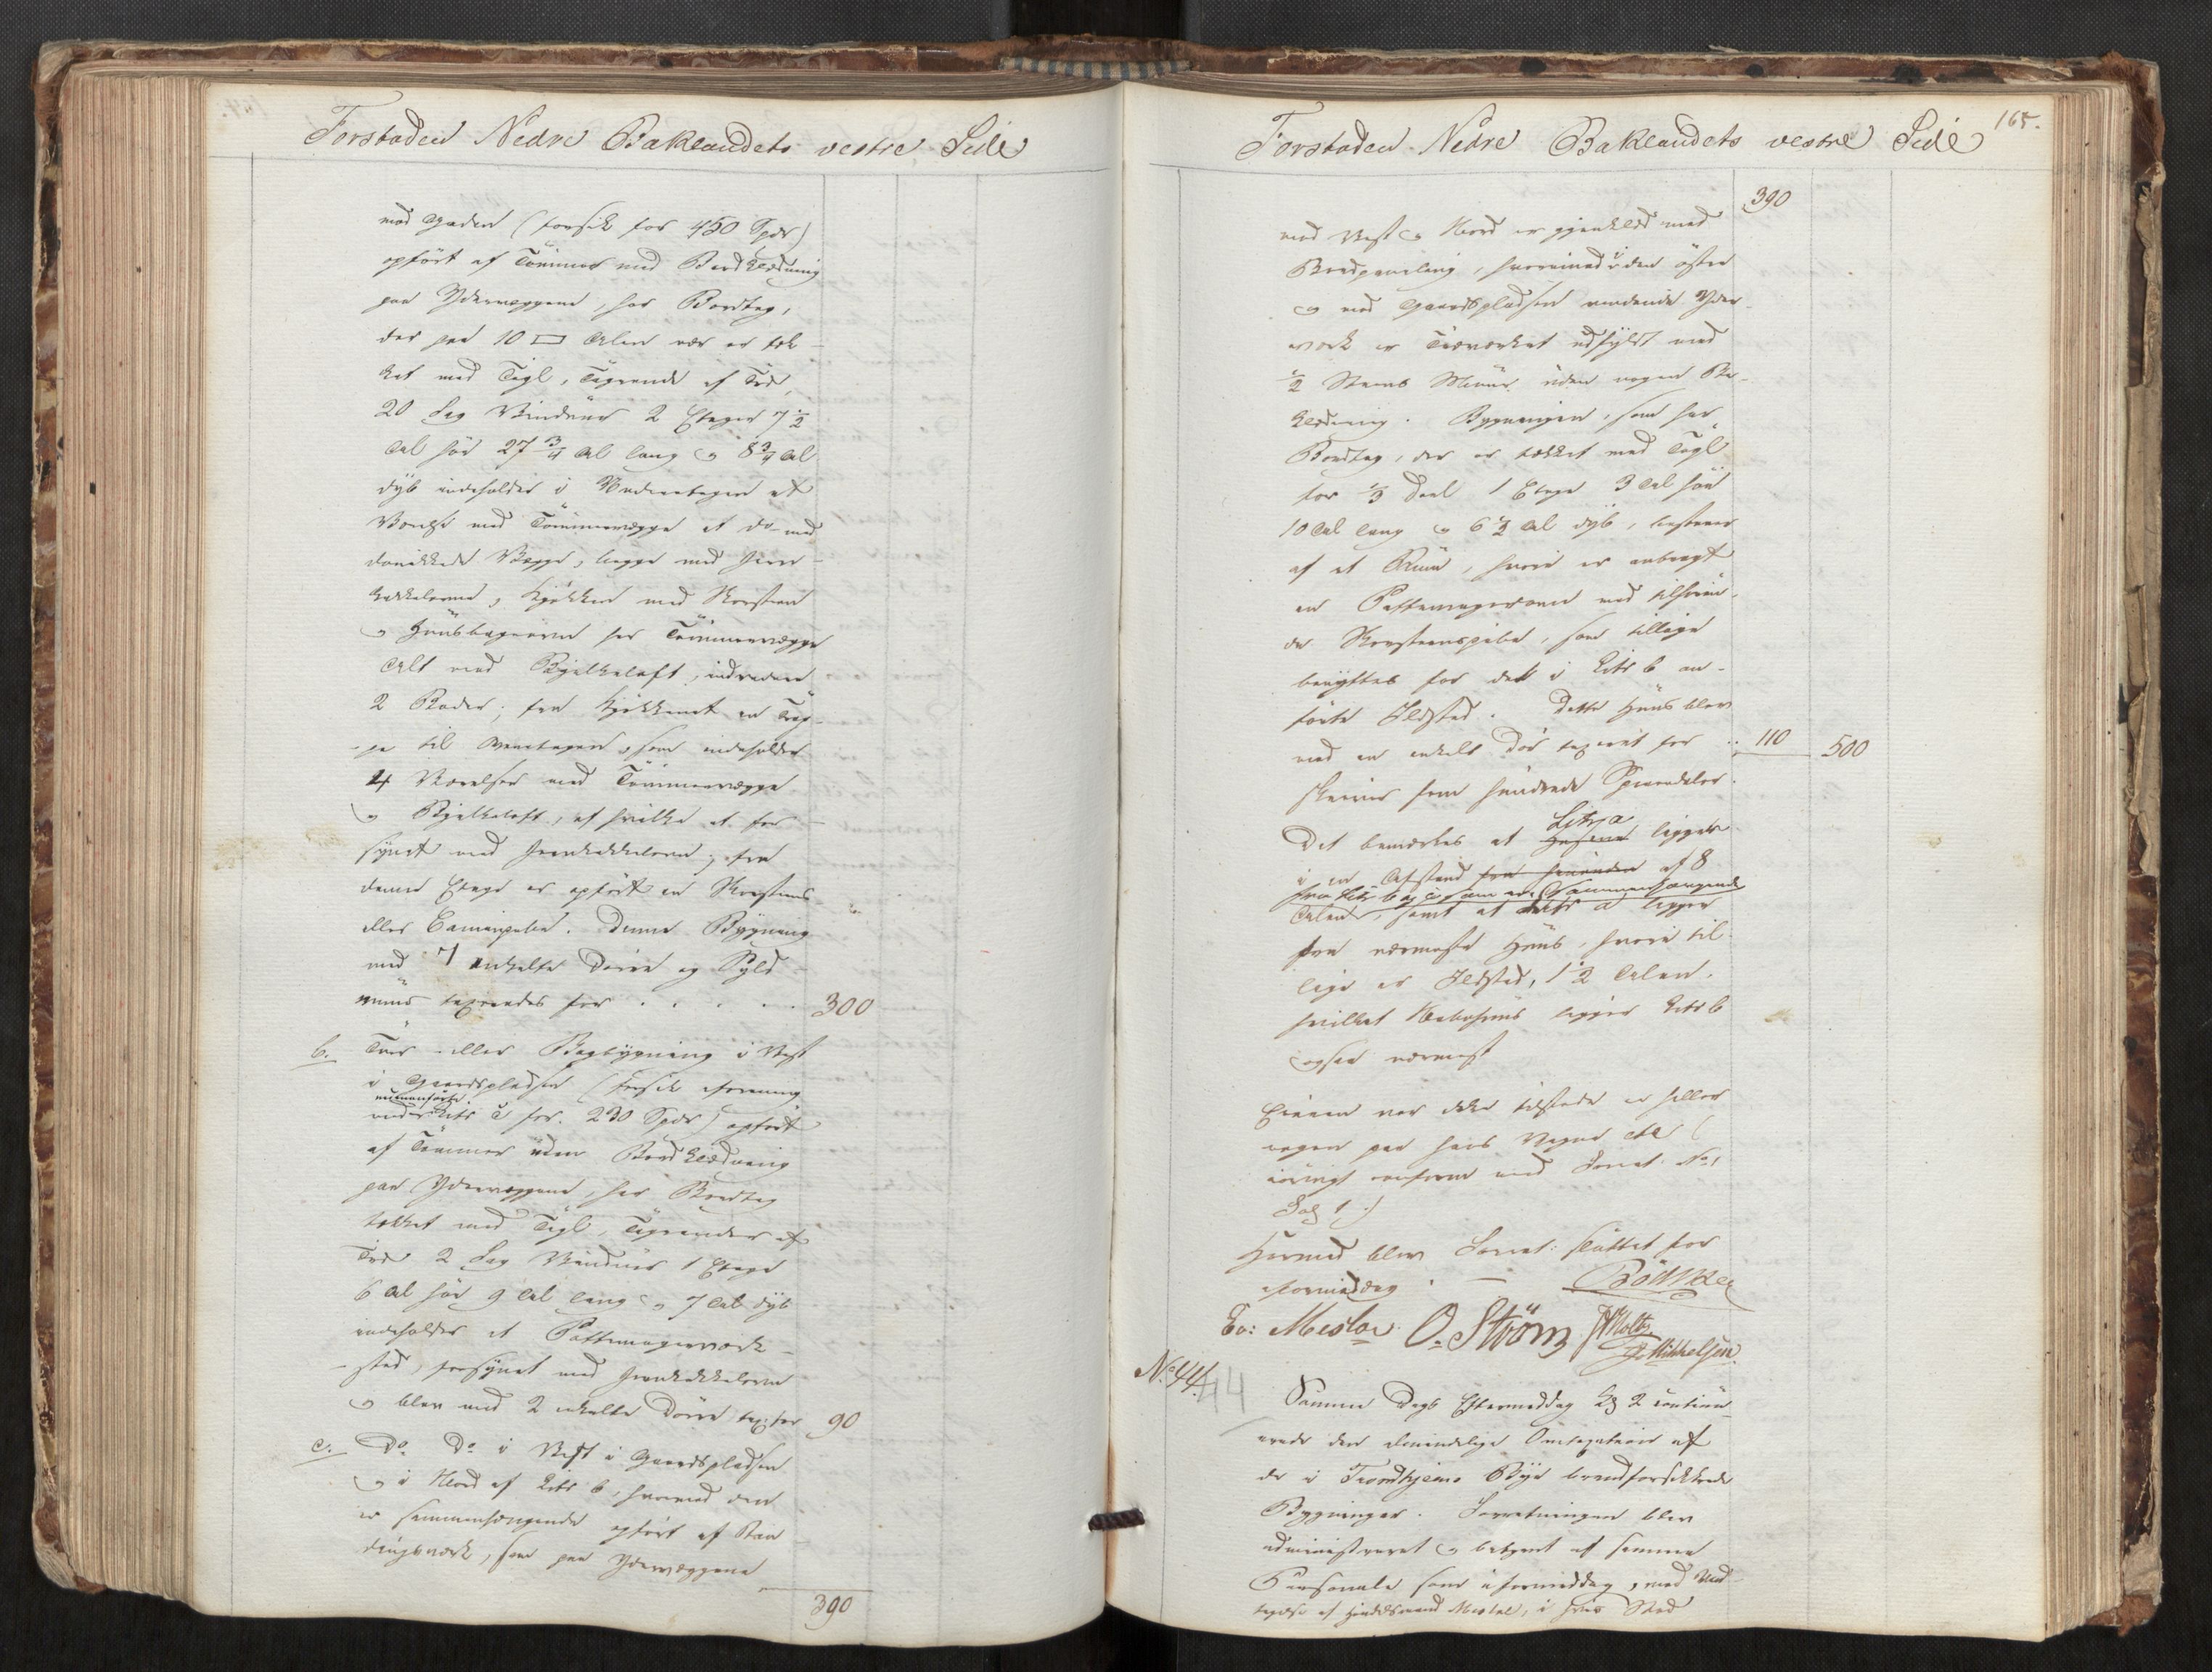 Forstaden Nedre Baklandets vestre Side
mod Gaden (forsik for 450 Spdr)
opført af Tømmer med Bordklædning
paa Ydervæggene, har Bordtag,
der paa 10 □ Alen nær er tæk-
ket med Tegl, Tagrende af Træ,
20 Fag Vinduer 2 Etager 7 1/2
Al høi 27 3/4 Al lang og 8 3/4 Al
dyb indeholder i Underetagen et
Værelse med Tømmervægge et do med
Vægge, begge med Jern-
kakkelovne, Kjøkken med Skorsteen
og Huusbagerovn har Tømmervægge
Alt med Bjelkeloft,
2 Boder; fra Kjøkkenet en Trap-
pe til Overetagen, som indeholder
4 Værelser med Tømmervægge
og Bjelkeloft, af hvilke et for-
synet med Jernkakkelovn; fra
denne Etage er opført en Skorsteens
eller Caminpibe. Denne Bygning
med 7 enkelte Dørre og Syld-
muur taxeredes for . . . . . 300
b. Tver- eller Bagbygning i Vest
i Gaardspladsen (forsik i forening
med nedenanførte Litr c for 230 Spdr) opført
af Tømmer uden Bordklædning
paa Ydervæggene, har Bordtag
tækket med Tegl, Tagrender af
Træ 2 Fag Vinduer 1 Etage
6 Al høi 9 Al lang og 7 Al dyb
indeholder et Pottemagerværk-
sted, forsynet med Jernkakkelovn
og blev med 2 enkelte Dørre tax: for 90
c. Do Do i Vest i Gaardspladsen
og i Nord af Litr b, hvormed den
er sammenhængende opført af Bin-
dingsværk, som paa Ydervæggene
390
165.
Forstaden Nedre Baklandets vestre Side
390
mod Vest og Nord er med
Bordpaneling, hvorimod i den østre
og mod Gaardspladsen vendende Yder-
værk er Træværket udfyldt med
1/2 Steens Muur uden nogen Be-
klædning. Bygningen, som har
Bordtag, der er tækket med Tegl
for 1/3 Deel 1 Etage 3 Al høi
10 Al lang og 6 1/2 Al dyb, bestaaer
af et Rum, hvori er anbragt
en Pottemagerovn med tilhøren-
de Skorsteenspibe, som tillige
benyttes for det i Litr b an-
førte Ildsted. Dette Huus blev
med en enkelt Dør taxeret for .. 110 500
skriver fem hundrede Speciedaler.
Det bemærkes at Litr a ligger
i en Afstand af 8
fra Litr b og c som ere Sammenhængende
Alen, samt at Litr a ligger
fra nærmeste Huus, hvori til-
lige er Ildsted, 1 1/2 Alen.
hvilket Nabohuus ligger Litr b
ogsaa nærmest
Eieren var ikke tilstede ei heller
nogen paa hans Vegne etc (
iøvrigt conform med Forret. No 1
Fol 1)
Hermed blev Forret: sluttet for
Formiddag. — Bødtker
Ev: Meslow O. Strøm Holtz
J. Mikkelsen.
No 44. 44
Samme Dags Eftermiddag Kl 2 continu-
erede den almindelige Omtaxation af
de i Trondhjems Bye brandforsikkrede
Bygninger. Forretningen blev
administreret og betjent af samme
Personale som i formiddag, med Und-
tagelse af Meslow, i hvis Sted